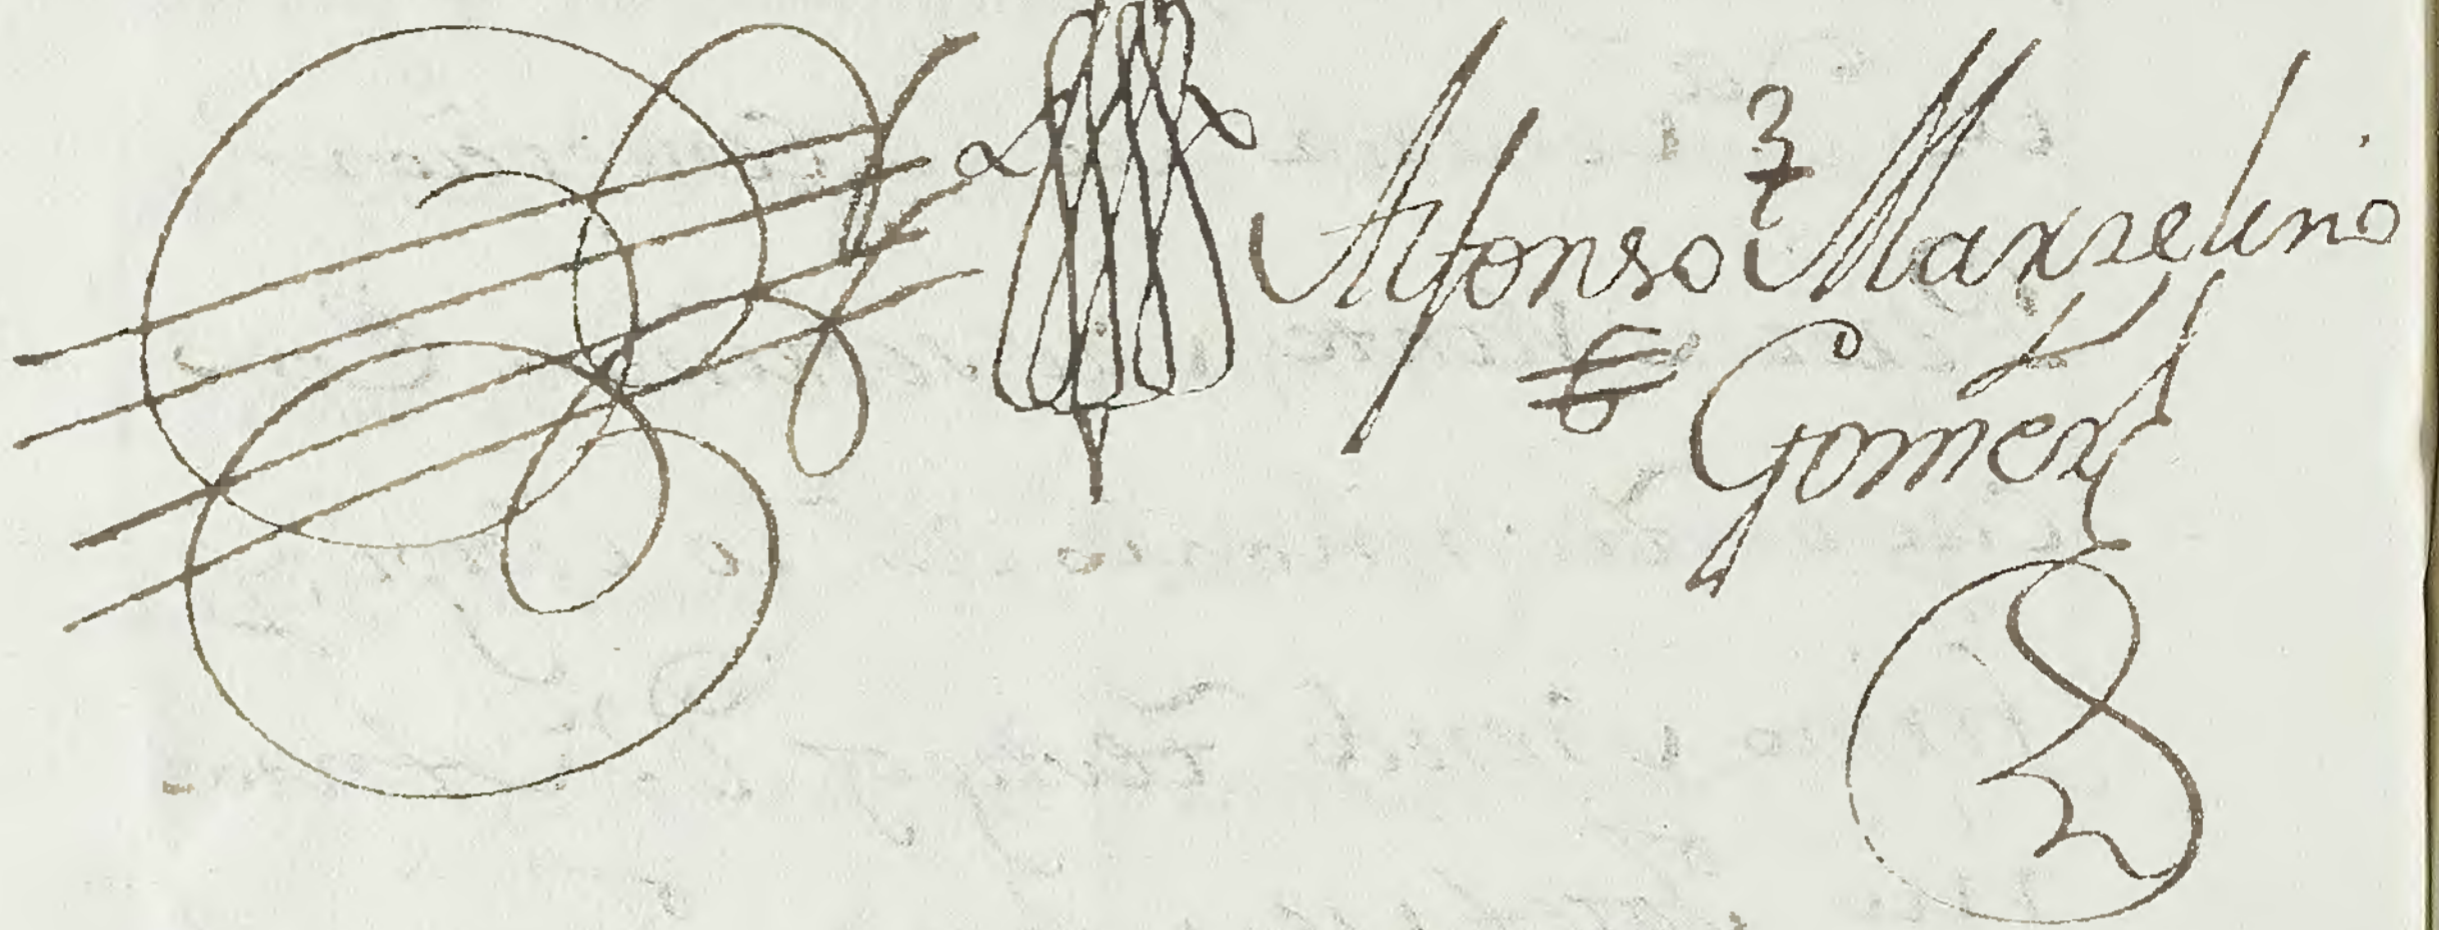 Alfonso Marselino
Gomez